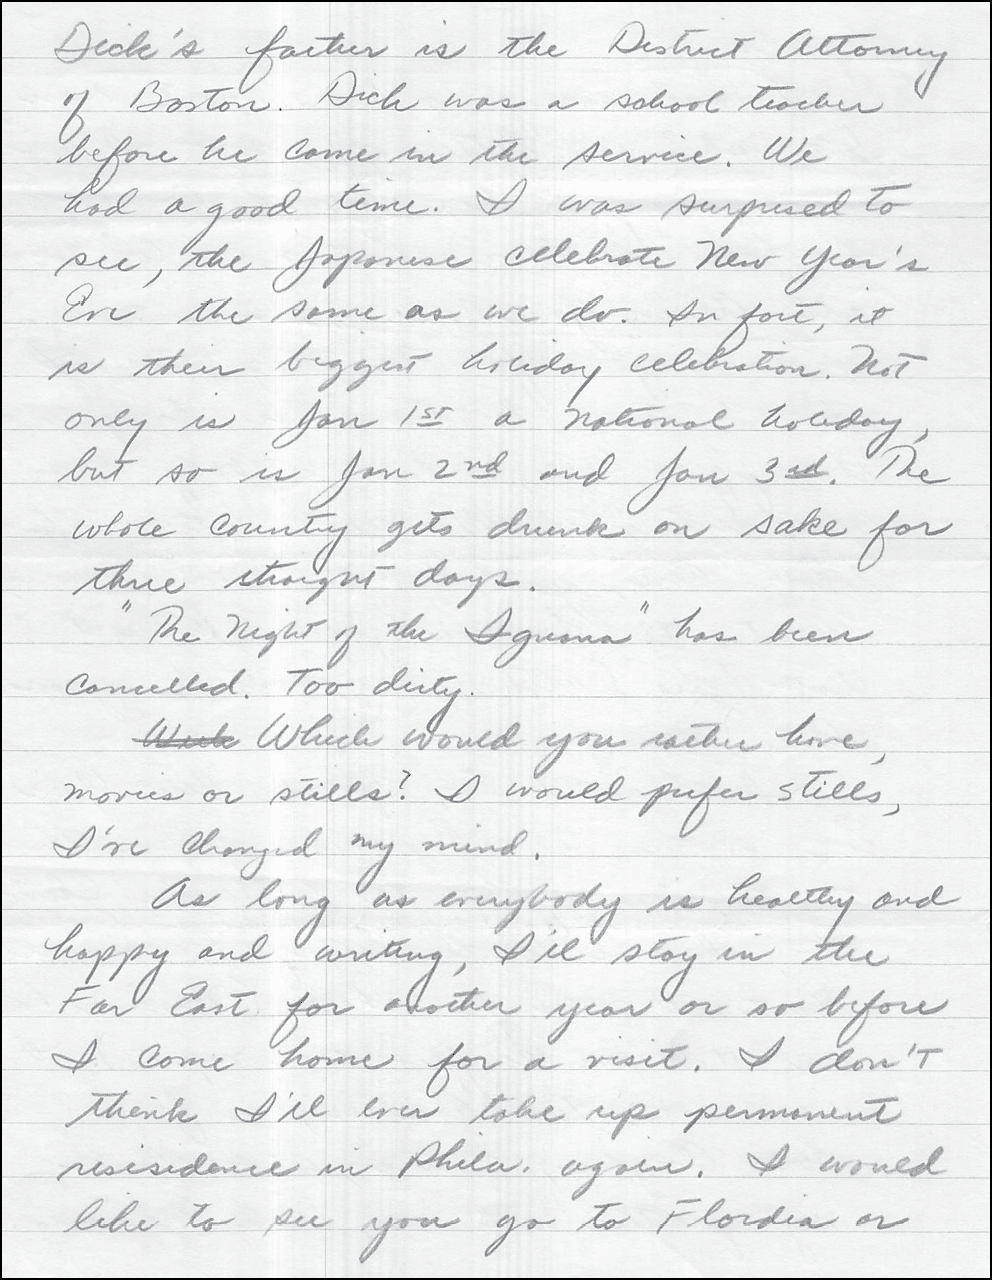 Dick's father is the District Attorney
of Boston. Dick was a school teacher
before he came in the service. We
had a good time. I was surprised to
see, the Japanese celebrate New Year's
Eve the same as we do. In fact, it
is their biggest holiday celebration. Not
only is Jan 1st a national holiday,
but so is Jan 2nd and Jan 3rd. The
whole country gets drunk on sake for
three straight days.
"The Night of the Iguana" has been
cancelled. Too dirty.
Which would you rather have,
movies or stills? I would prefer stills,
I've changed my mind.
As long as everybody is healthy and
happy and writing, I'll stay in the
Far East for another year or so before
I come home for a visit. I don't
think I'll ever take up permanent
resisidence in Phila. again. I would
like to see you go to Flordia or